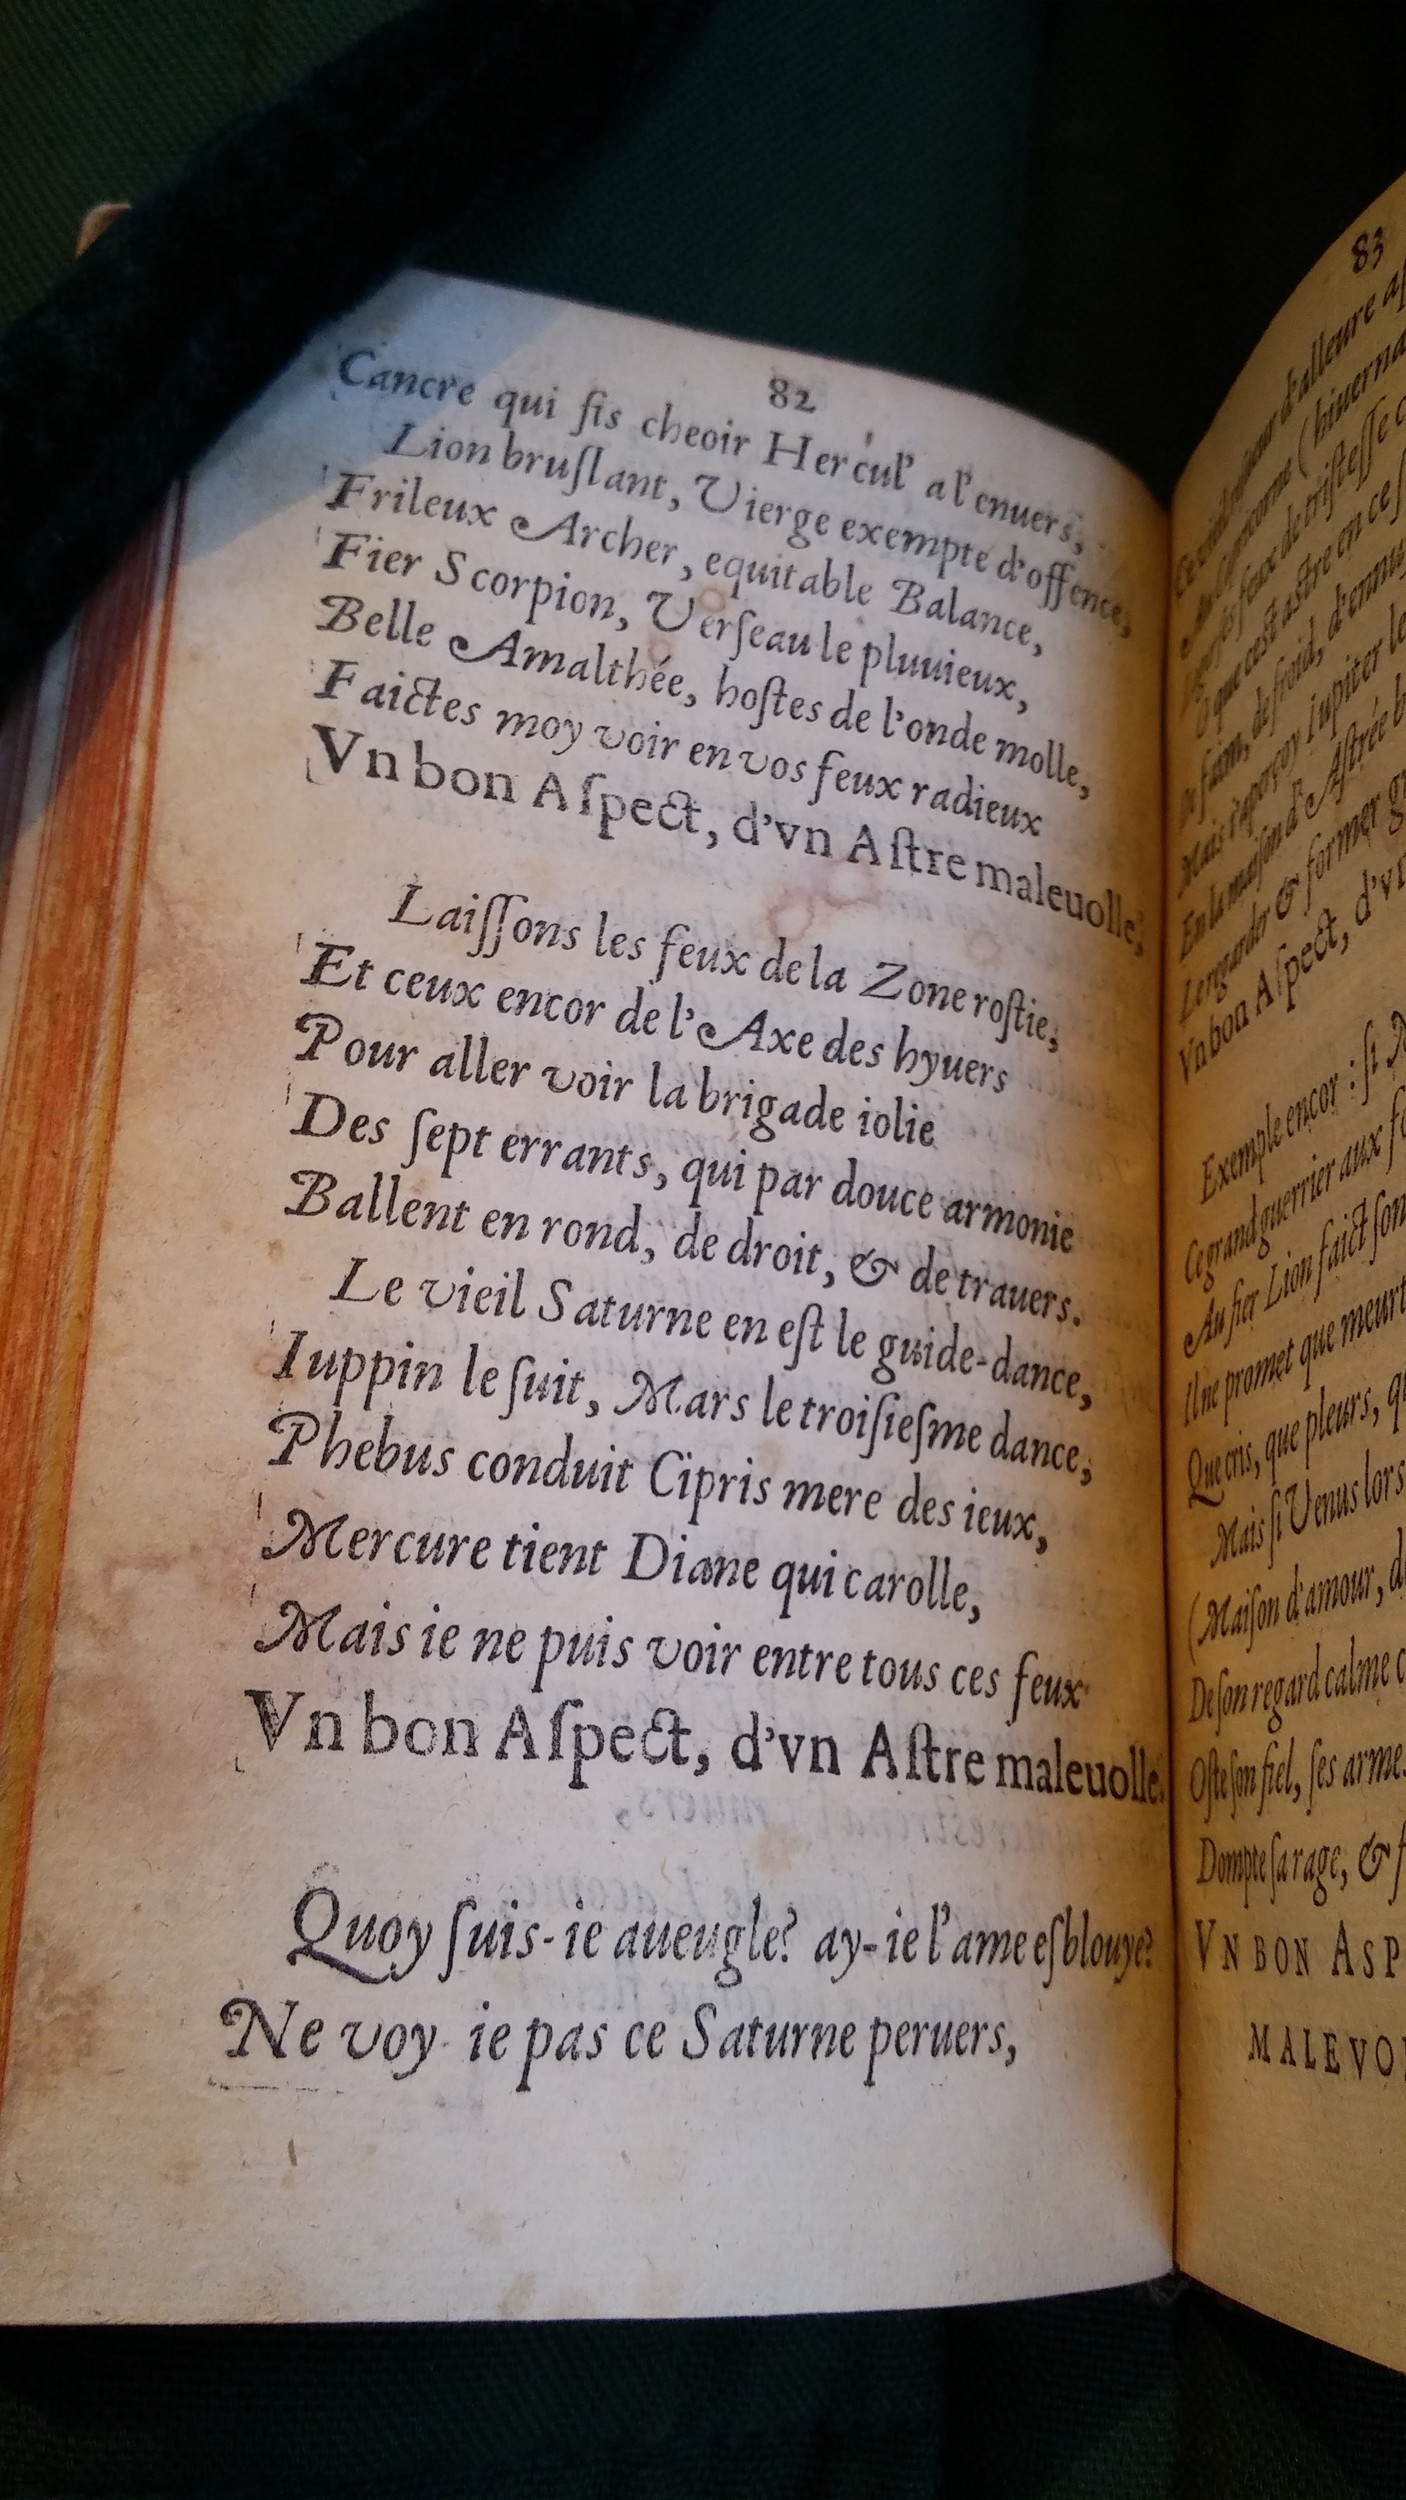 82
Cancre qui fis cheoir Hercul' a l'enuers,
Lion bruſlant, Vierge exempte d'offence,
Frileux Archer, equitable Balance,
Fier Scorpion, Verſeau le pluuieux,
Belle Amalthée, hoſtes de l'onde molle,
Faictes moy voir en vos feux radieux
Vn bon Aſpect, d'vn Aſtre maleuolle,
Laiſſons les feux de la Zone roſtie,
Et ceux encor de l'Axe des hyuers
Pour aller voir la brigade iolie
Des ſept errants, qui par douce armonie
Ballent en rond, de droit, & de trauers.
Le vieil Saturne en eſt le guide-dance,
Iuppin le ſuit, Mars le troiſieſme dance,
Phebus conduit Cipris mere des ieux,
Mercure tient Diane qui carolle,
Mais ie ne puis voir entre tous ces feux
Vn bon Aſpect, d'vn Aſtre maleuolle.
Quoy ſuis-ie aueugle? ay-ie l'ame eſblouye?
Ne voy ie pas ce Saturne peruers,
83
d'alleure
Capricorne (hiuerna
feux de triſteſſe
que ceſt aſtre en ce
faim, de froid, d'ennuy
Mais s'aperçoy Iupiter le
En la maiſon d'Aſtrée b
Le regarder & former
Vn bon Aſpect, d'vn
Exemple encor: ſi
Ce grand guerrier aux
Au fier Lion faict ſon
Il ne promet que meurt
Que cris, que pleurs,
Mais ſi Venus lors
(Maiſon d'amour,
De ſon regard calme
Oſte ſon fiel, ſes armes
Dompte ſa rage, &
VN BON ASP
MALEVO